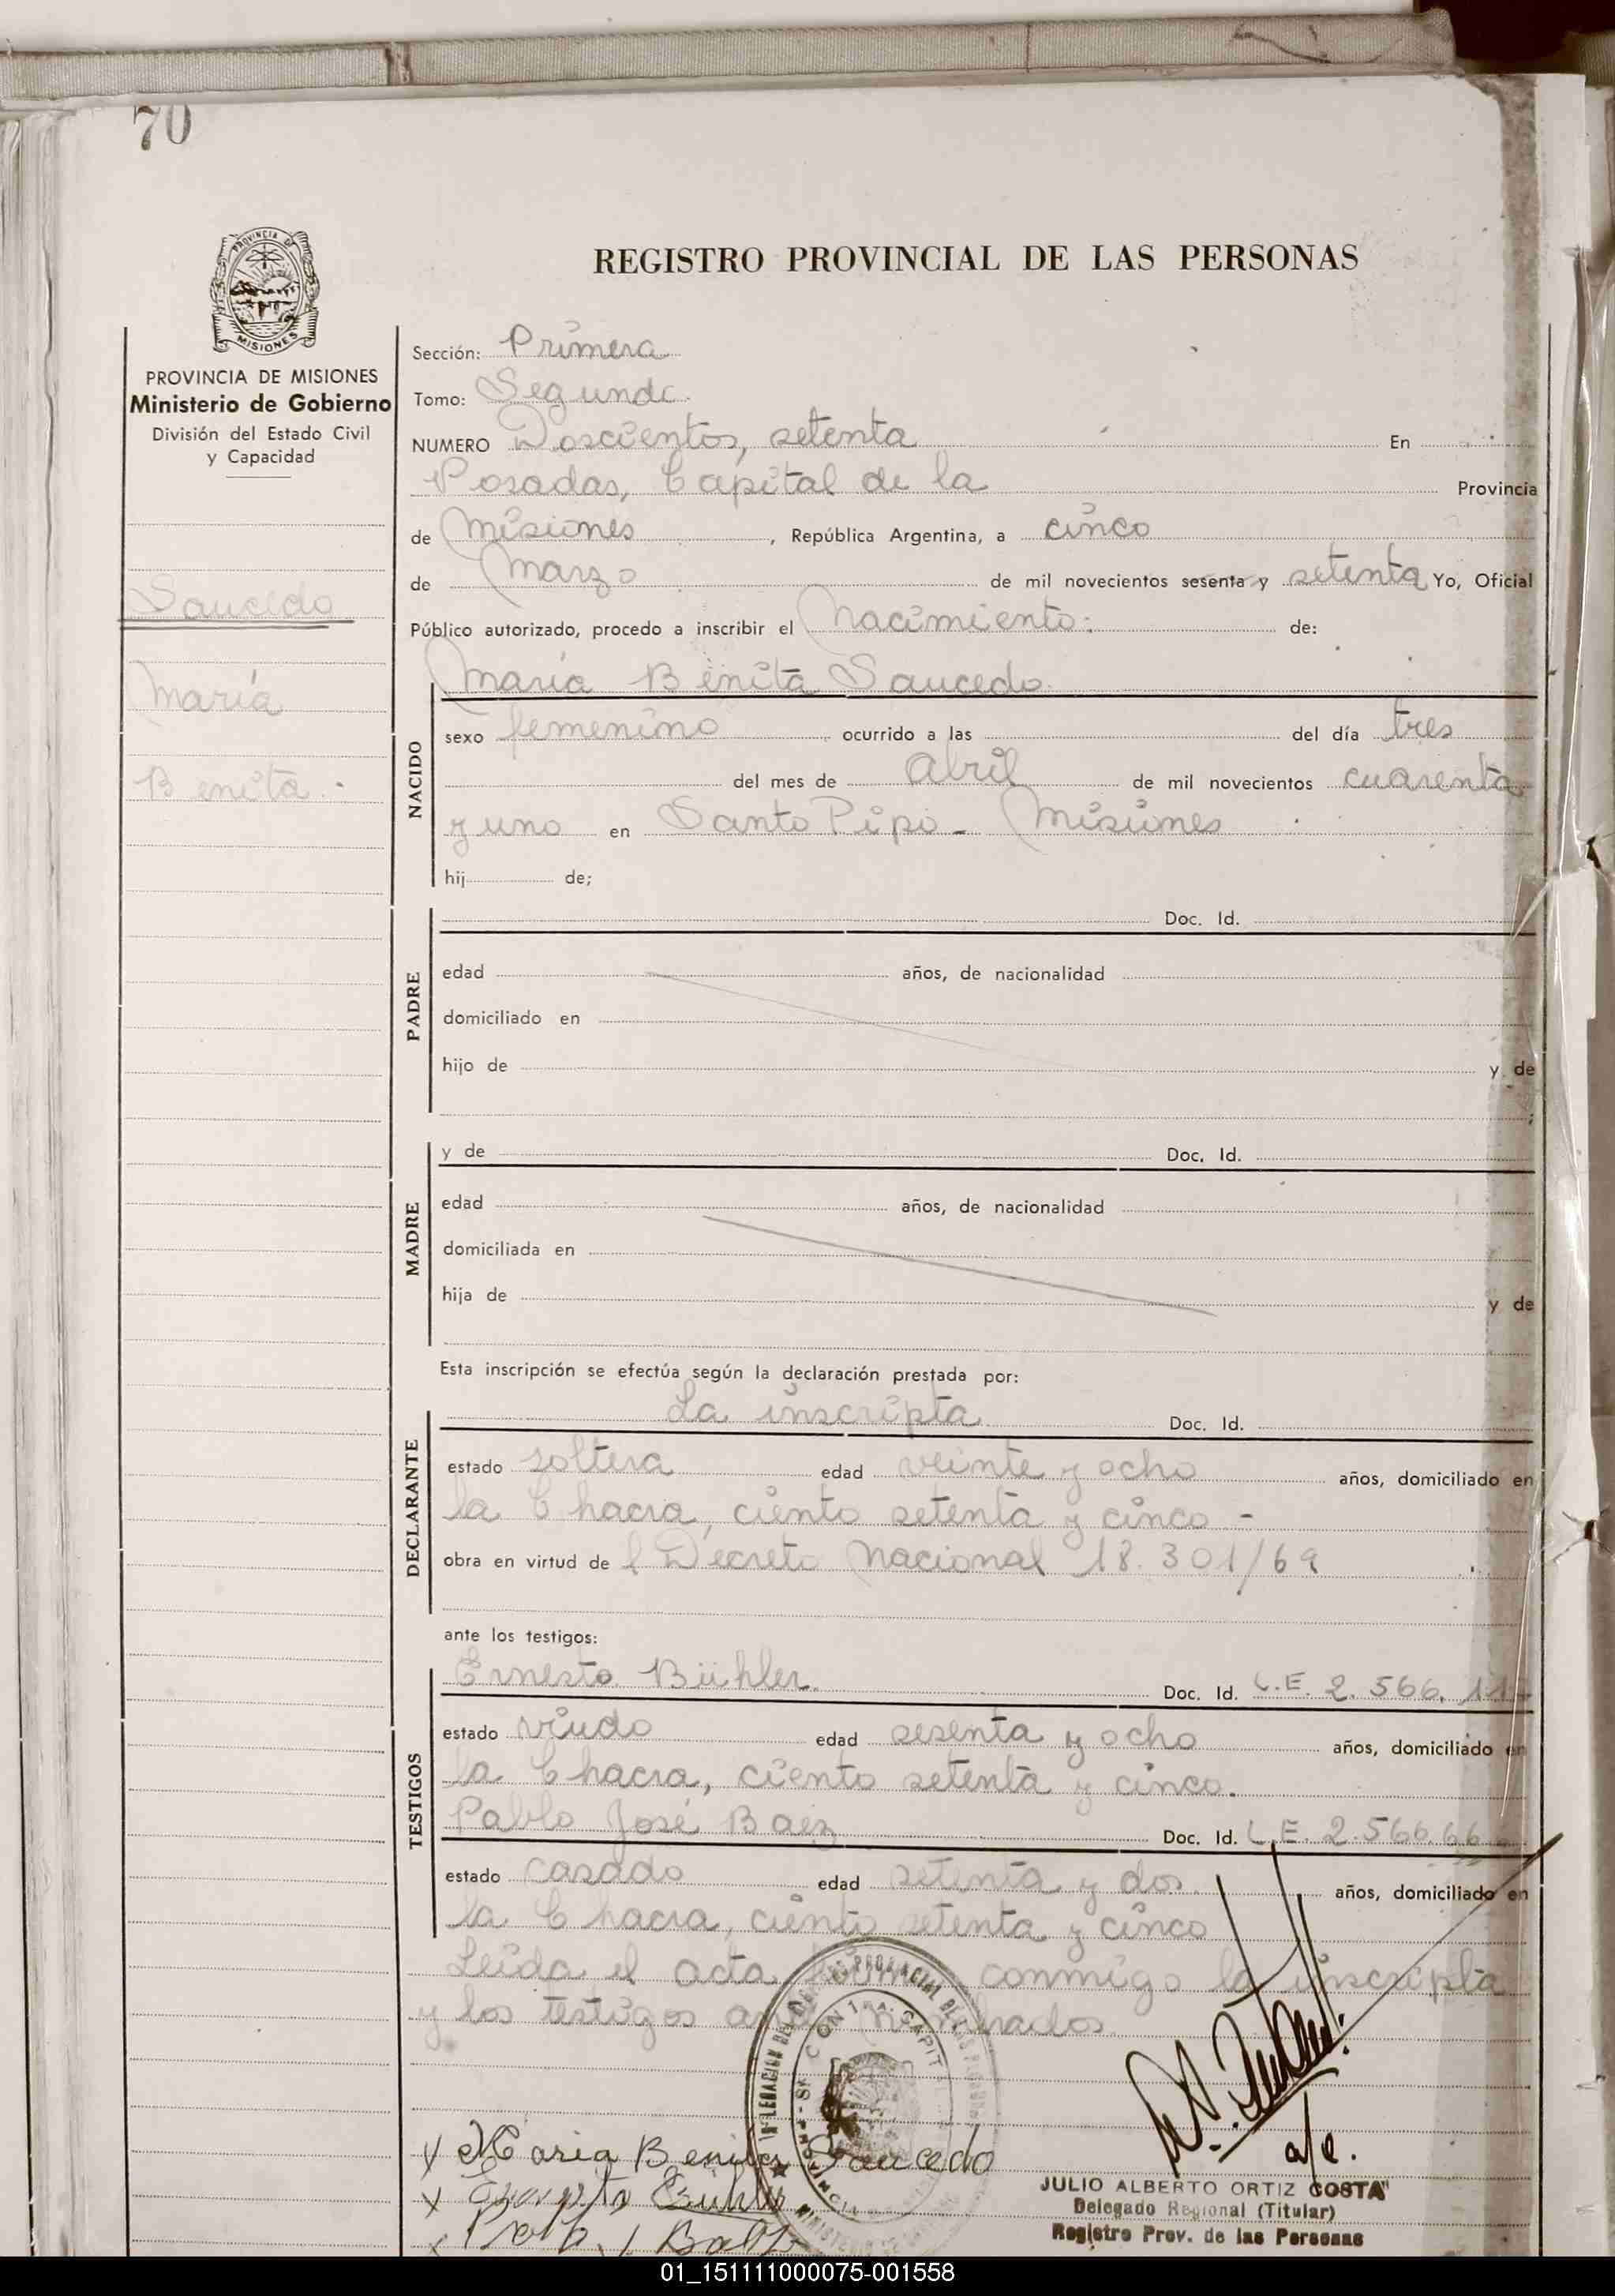 70
PROVINCIA DE
MISIONES
REGISTRO PROVINCIAL DE LAS PERSONAS
PROVINCIA DE MISIONES
Ministerio de Gobierno
División del Estado Civil
y Capacidad
Saucedo
María
Benita.-
Sección: Primera
Tomo: Segundo.
NUMERO Doscientos, setenta En
Posadas, Capital de la Provincia
de Misiones, República Argentina, a cinco
de Marzo de mil novecientos sesenta y setenta Yo, Oficial
Público autorizado, procedo a inscribir el Nacimiento: de:
María Benita Saucedo.
NACIDO
sexo femenino ocurrido a las del día tres
del mes de Abril de mil novecientos cuarenta
y uno en Santo Pipo - Misiones
hij de;
PADRE
Doc. Id.
edad años, de nacionalidad
domiciliado en
hijo de y de
MADRE
y de Doc. Id.
edad años, de nacionalidad
domiciliada en
hija de y de
Esta inscripción se efectúa según la declaración prestada por:
DECLARANTE
La inscripta Doc. Id.
estado soltera edad veinte y ocho años, domiciliado en
la Chacra, ciento setenta y cinco -
obra en virtud de l Decreto Nacional 18.301/69
ante los testigos:
TESTIGOS
Ernesto Bühler. Doc. Id. L.E. 2.566.11
estado viudo edad sesenta y ocho años, domiciliado en
la Chacra, ciento setenta y cinco.
Pablo José Baez Doc. Id. L.E. 2.566.66
estado casado edad setenta y dos años, domiciliado en
la Chacra, ciento setenta y cinco
Leída el acta conmigo la inscripta
y los testigos
Maria Benita Saucedo
a/c.
JULIO ALBERTO ORTIZ COSTA
Delegado Regional (Titular)
Registro Prov. de las Personas
01_151111000075-001558